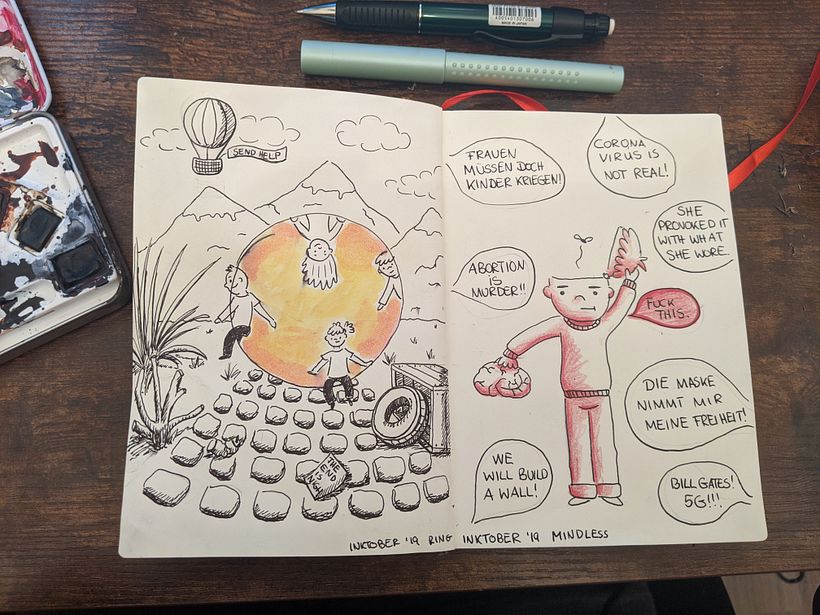 4005401307006
MADE IN JAPAN
SEND HELP
THE
END
IS
NIGH
INKTOBER '19 RING
FRAUEN
MÜSSEN DOCH
KINDER KRIEGEN!
CORONA
VIRUS IS
NOT REAL!
SHE
PROVOKED IT
WITH WHAT
SHE WORE.
ABORTION
IS
MURDER!!
FUCK
THIS.
DIE MASKE
NIMMT MIR
MEINE FREIHEIT!
WE
WILL BUILD
A WALL!
BILL GATES!
5G!!!
INKTOBER '19 MINDLESS